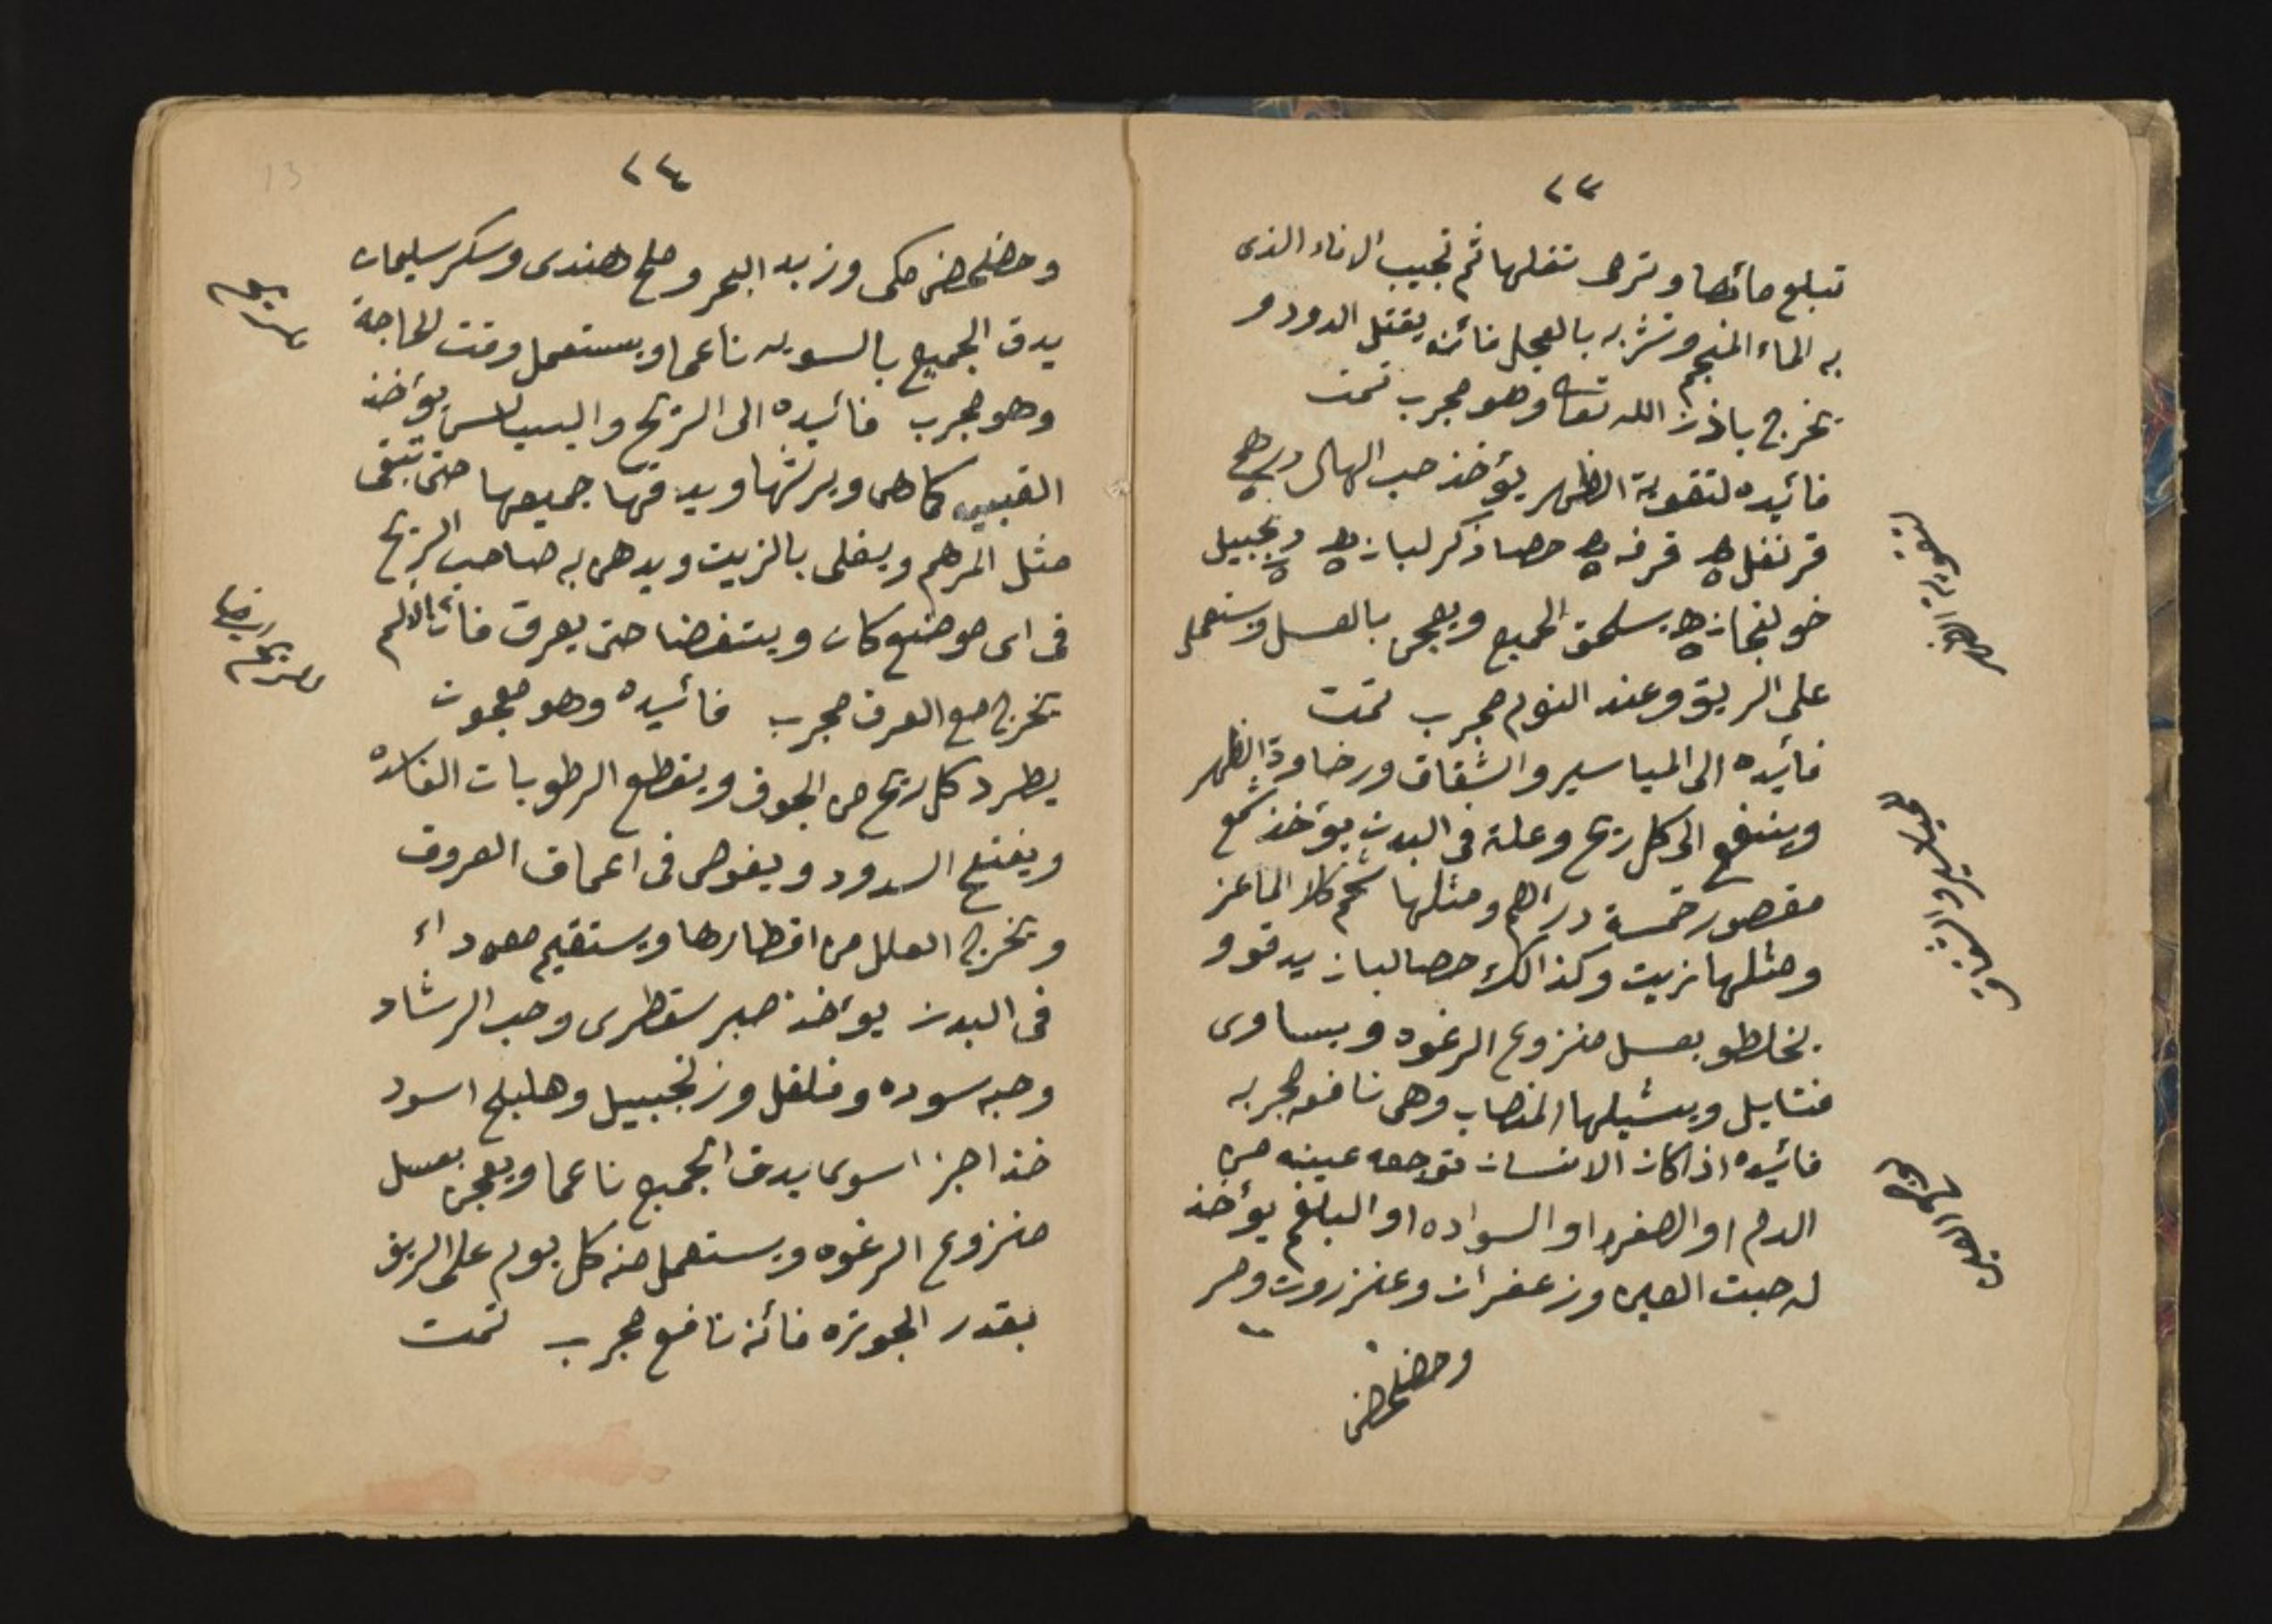 ٢٣
تبلع مائها وترمى تفلها ثم تجيب الاناء الذى
به الماء المنجم وتشربه بالعجل فائنه يقتل الدود و
تخرج باذن الله تعا وهو مجرب تمت
فائيده لتقوية الظهر يؤخذ حب الهال درهم
قرنفل قرفه حصا ذكر لبان زنجبيل
خولنجان يسحق الجميع ويعجن بالعسل ويستعمل
على الريق وعند النوم مجرب تمت
فائيده الى المياسير والشقاق ورخاوة الظهر
وينفع الى كل ريح وعلة فى البدن يؤخذ شمع
مقصور خمسة دراهم ومثلها شحم كلا الماعز
ومثلها زيت وكذالك حصا لبان يدقوو
يخلطو بعسل منزوع الرغوه ويساوى
فتايل ويشيلها المنصاب وهى نافعه مجربه
فائيده اذا كان الانسان توجعه عينيه من
الدم او الصفره او السواده او البلغم يؤخذ
له حبت العين وزعفران وعنزروت ومر
وحضحض
لتقوية الظهر
مياسير والشقاق
٢٤
وحضحض مكى وزبد البحر وملح هندى وسكر سليمان
يدق الجميع بالسويه ناعما ويستعمل وقت الحاجة
وهو مجرب فائيده الى الريح واليبياس يؤخذ
القبيبه كما هى ويرشها ويدقها جميعها حتى تبقى
مثل المرهم ويغلى بالزيت ويدهن به صاحب الريح
فى اى موضع كان ويتغضا حتى يعرق فان الالم
تخرج مع العرق مجرب فائيده وهو معجون
يطرد كل ريح من الجوف ويقطع الرطوبات الفاسده
ويفتح السدود ويغوص فى اعماق العروق
وتخرج العلل من اقطارها ويستقيم معه داء
فى البدن يؤخذ صبر سقطرى وحب الرشاد
وحبه سوده وفلفل وزنجبيل وهليلج اسود
خذ اجزا سوى يدق الجميع ناعما ويعجن بعسل
منزوع الرغوه ويستعمل منه كل يوم على الريق
بقدر الجوزه فائنه نافع مجرب تمت